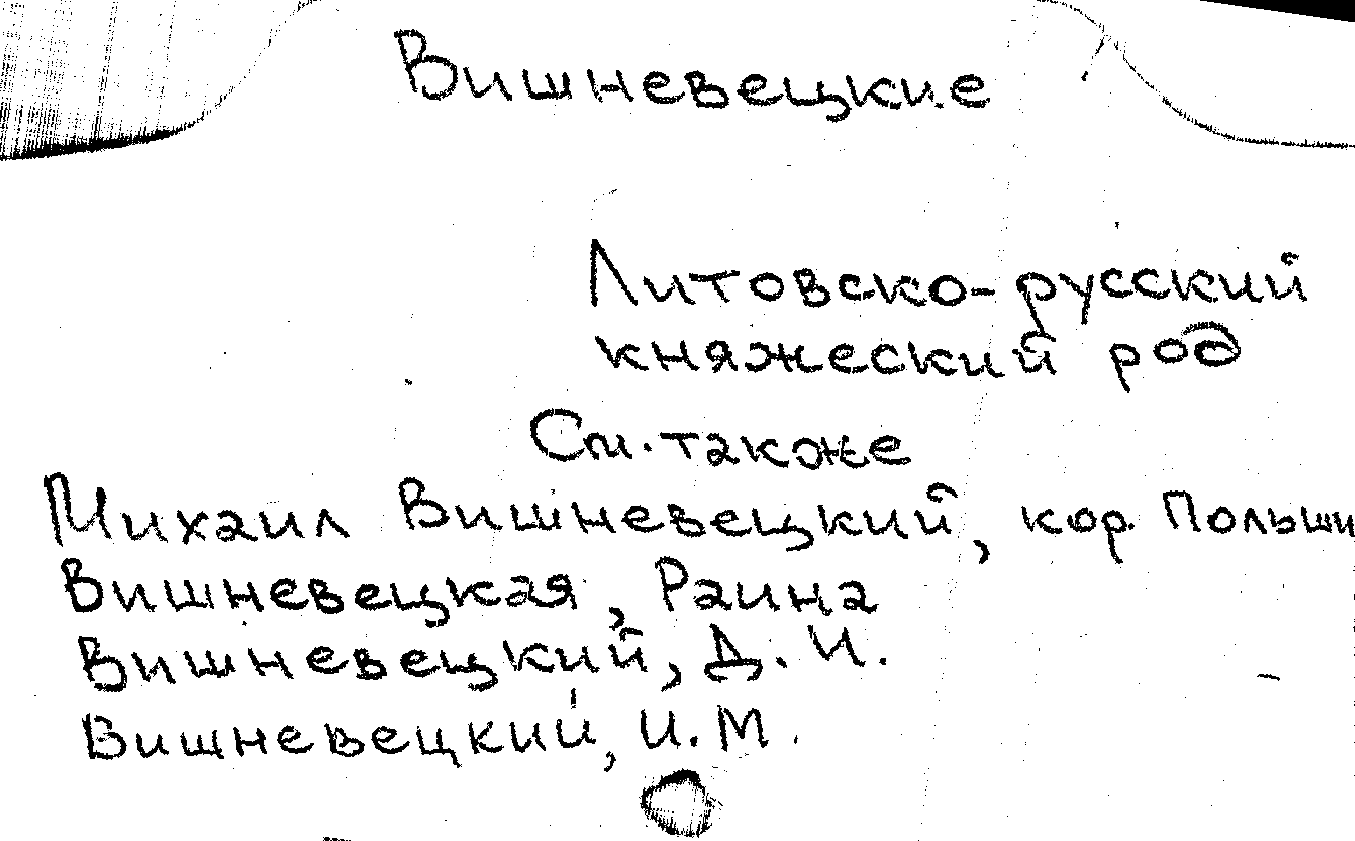 Вишневецкие
Литовско-русский
княжеский род
См. также
Михаил Вишневецкий, кор. Польши
Вишневецкая, Раина
Вишневецкий, Д. И.
Вишневецкий, И. М.